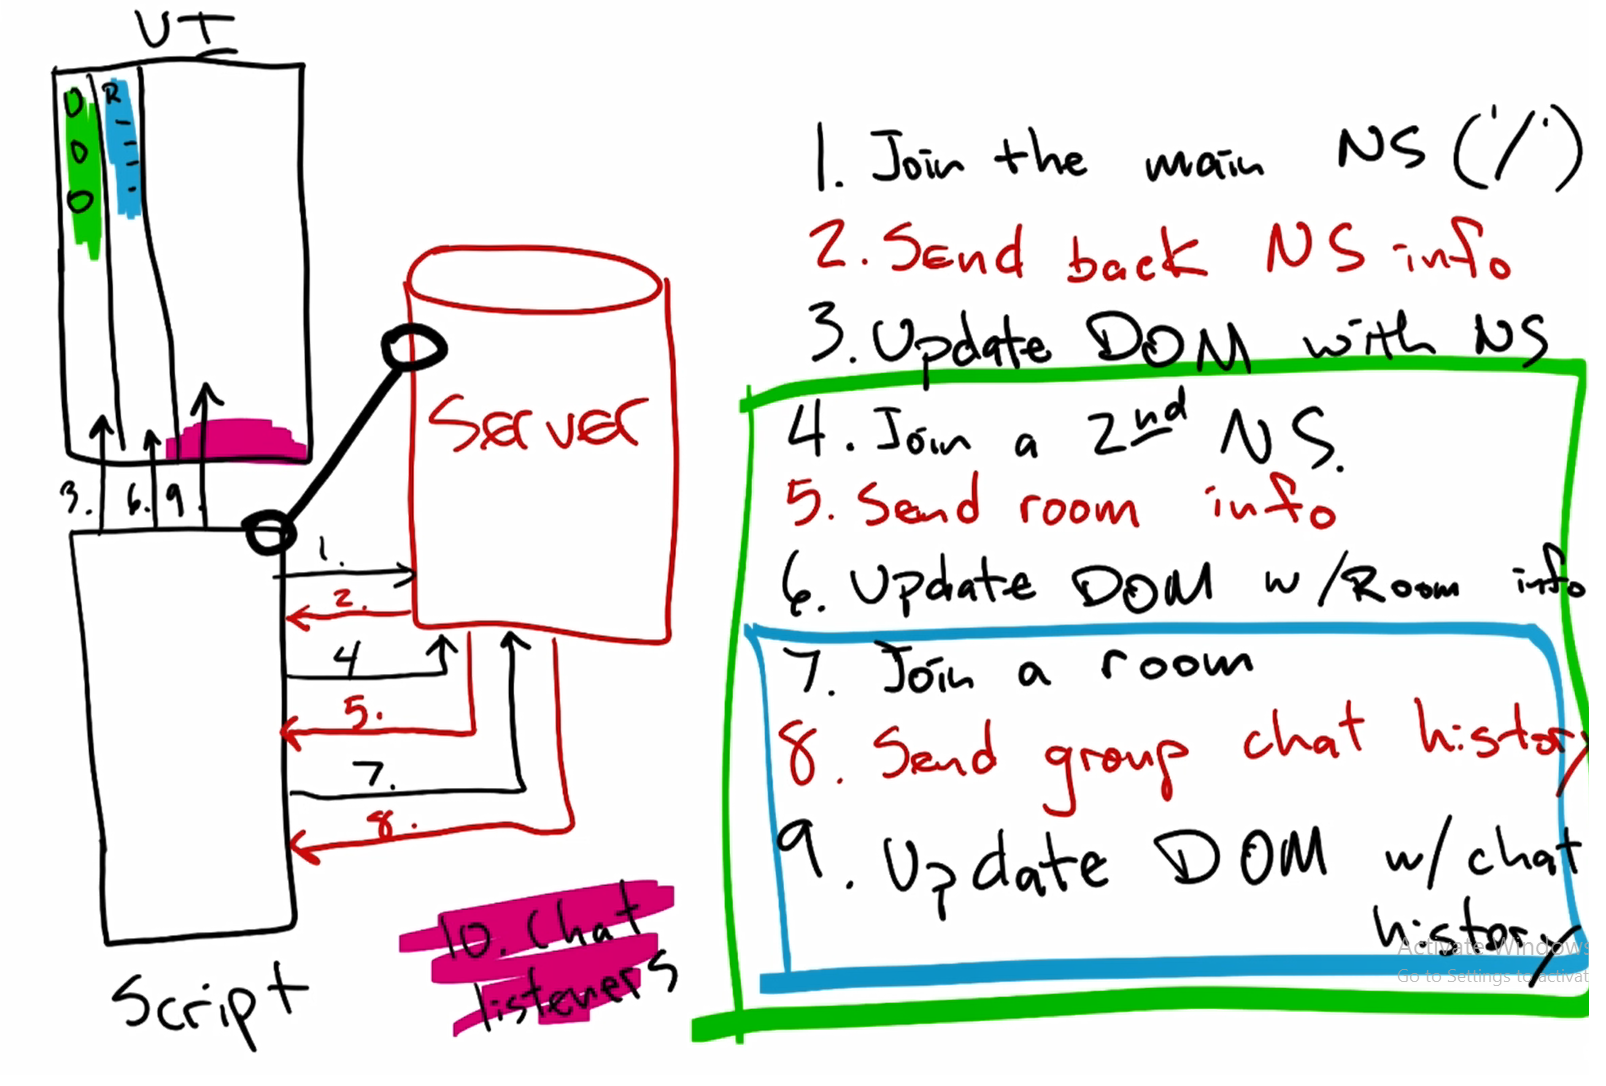 UI
O R
O
O
3. 6. 9.
Server
1.
2.
4
5.
7.
8.
Script
10. Chat
listeners
1. Join the main NS ('/')
2. Send back NS info
3. Update DOM with NS
4. Join a 2nd NS.
5. Send room info
6. Update DOM w/Room info
7. Join a room
8. Send group chat history
9. Update DOM w/ chat
history
Activate Windows
Go to Settings to activat